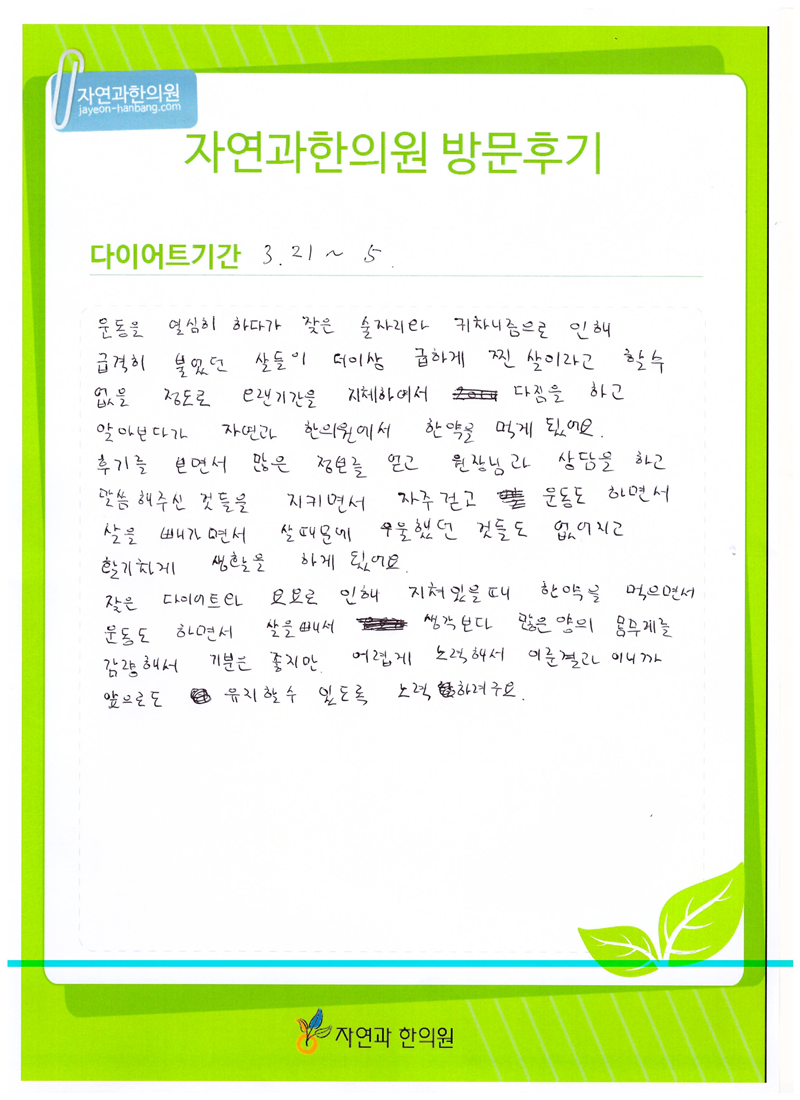 자연과한의원
jayeon-hanbang.com
자연과한의원 방문후기
다이어트기간 3. 21 ~ 5.
운동을 열심히 하다가 잦은 술자리와 귀차니즘으로 인해
급격히 불었던 살들이 더이상 급하게 찐 살이라고 할수
없을 정도로 오랜기간을 지체하여서 다짐을 하고
알아보다가 자연과 한의원에서 한약을 먹게 됬어요.
후기를 보면서 많은 정보를 얻고 원장님과 상담을 하고
말씀해주신 것들을 지키면서 자주걷고 운동도 하면서
살을 빼가면서 살때문에 우울했던 것들도 없어지고
활기차게 생활을 하게 됬어요.
잦은 다이어트와 요요로 인해 지쳐있을때 한약을 먹으면서
운동도 하면서 살을빼서 생각보다 많은양의 몸무게를
감량해서 기분은 좋지만 어렵게 노력해서 이룬결과 이니까
앞으로도 유지할수 있도록 노력하려구요.
자연과 한의원